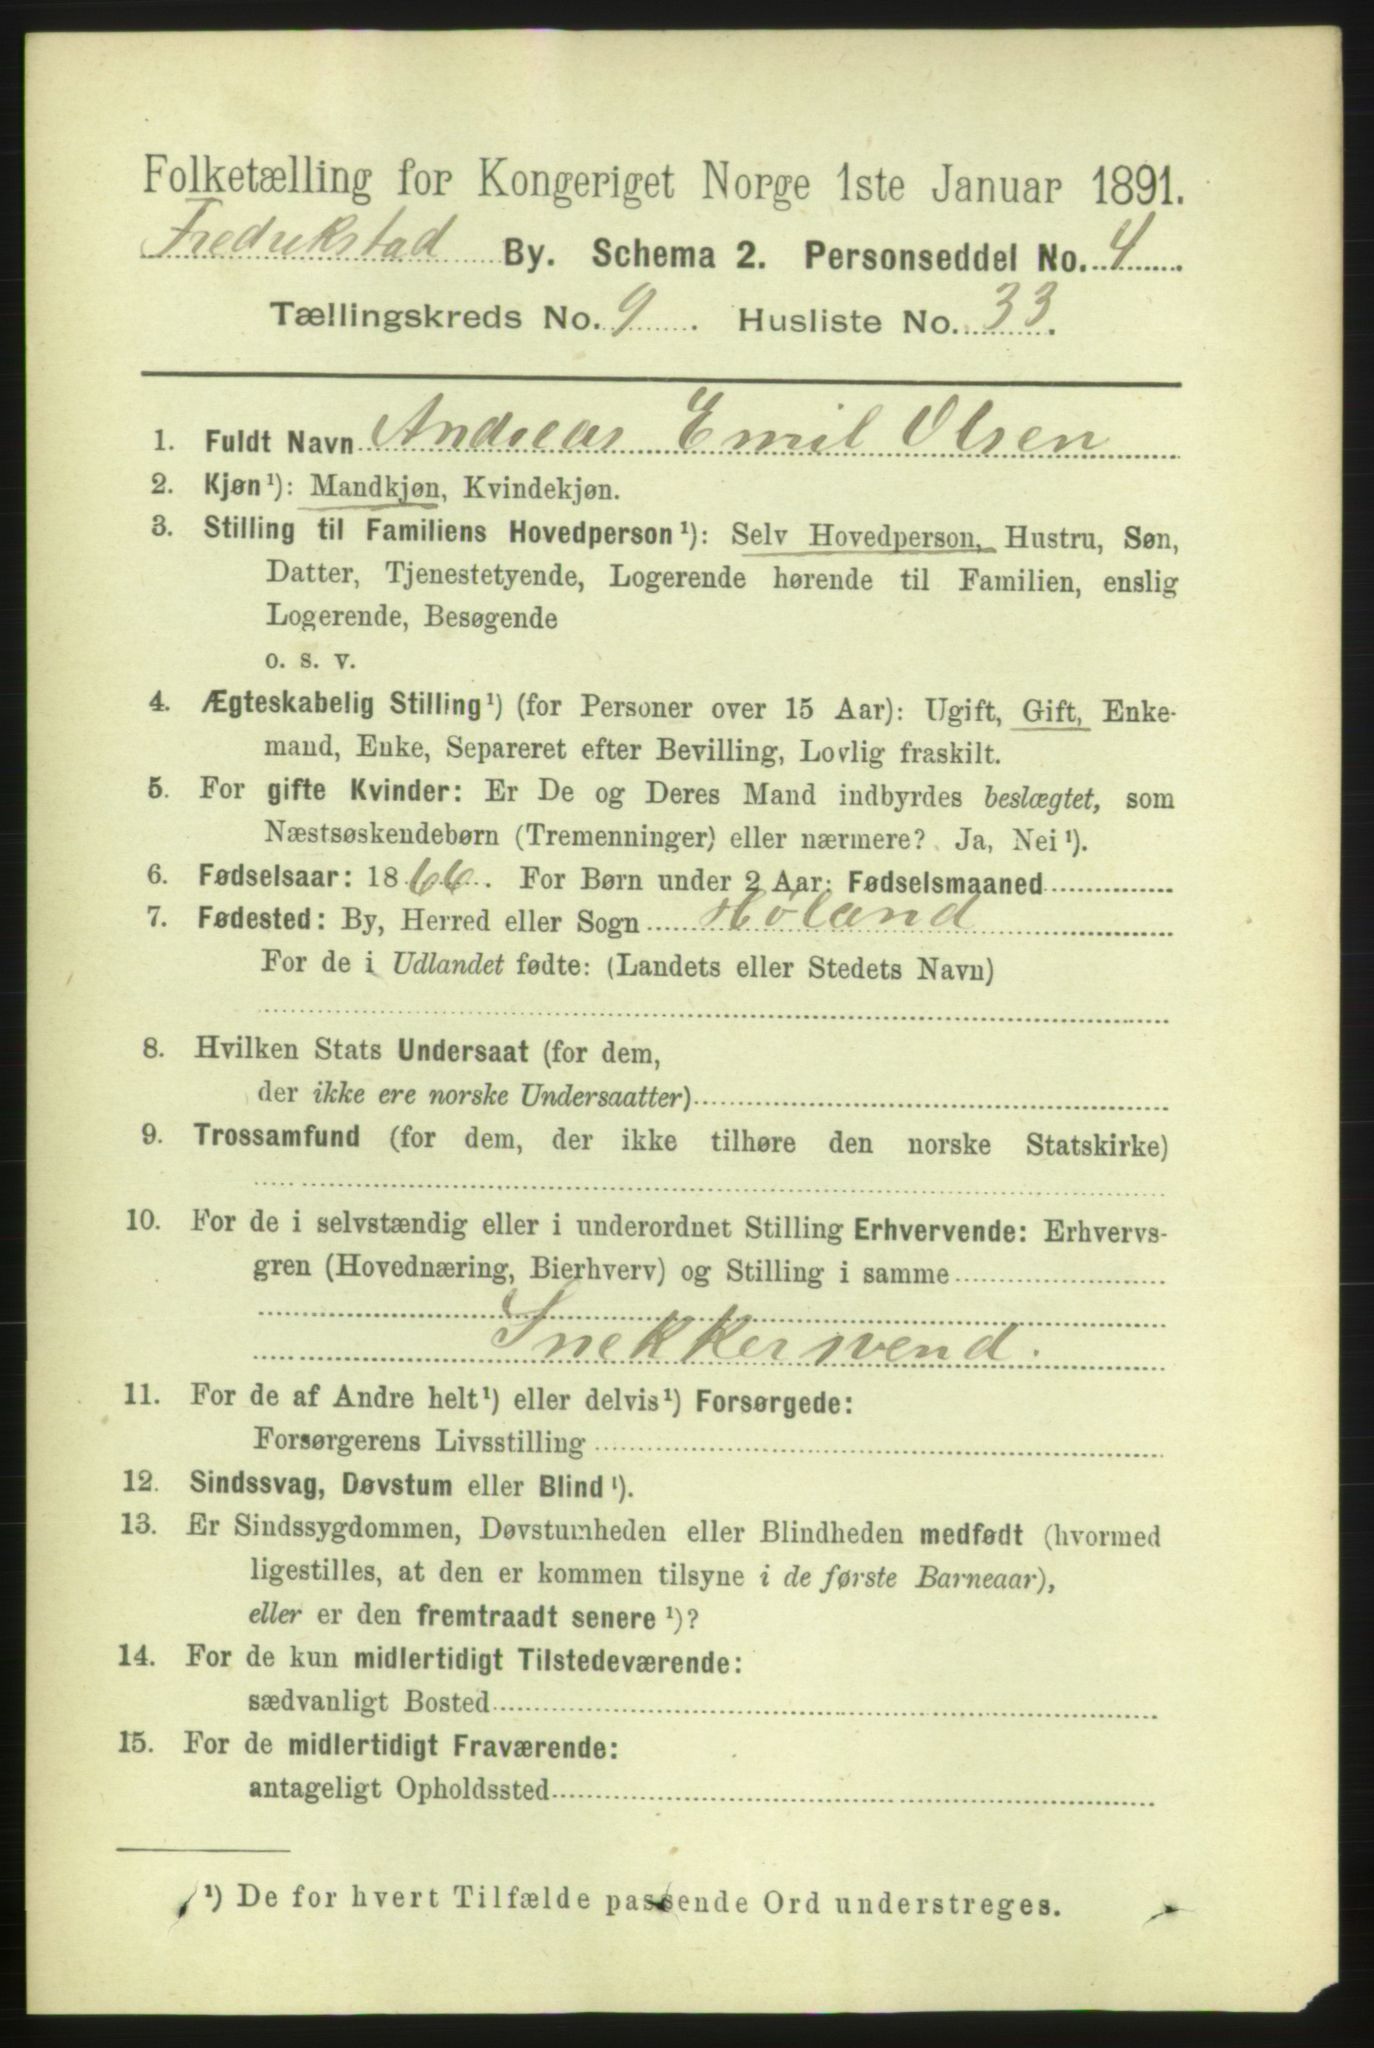 Folketælling for Kongeriget Norge 1ste Januar 1891.
Fredrikstad By. Schema 2. Personseddel No. 4
Tællingskreds No. 9. Husliste No. 33.
1. Fuldt Navn Andreas Emil Olsen
2. Kjøn¹): Mandkjøn, Kvindekjøn.
3. Stilling til Familiens Hovedperson¹): Selv Hovedperson, Hustru, Søn,
Datter, Tjenestetyende, Logerende hørende til Familien, enslig
Logerende, Besøgende
o. s. v.
4. Ægteskabelig Stilling¹) (for Personer over 15 Aar): Ugift, Gift, Enke-
mand, Enke, Separeret efter Bevilling, Lovlig fraskilt.
5. For gifte Kvinder: Er De og Deres Mand indbyrdes beslægtet, som
Næstsøskendebørn (Tremenninger) eller nærmere? Ja, Nei¹).
6. Fødselsaar: 1866. For Børn under 2 Aar: Fødselsmaaned
7. Fødested: By, Herred eller Sogn Høland
For de i Udlandet fødte: (Landets eller Stedets Navn)
8. Hvilken Stats Undersaat (for dem,
der ikke ere norske Undersaatter)
9. Trossamfund (for dem, der ikke tilhøre den norske Statskirke)
10. For de i selvstændig eller i underordnet Stilling Erhvervende: Erhvervs-
gren (Hovednæring, Bierhverv) og Stilling i samme
Snekkersvend.
11. For de af Andre helt¹) eller delvis¹) Forsørgede:
Forsørgerens Livsstilling
12. Sindssvag, Døvstum eller Blind¹).
13. Er Sindssygdommen, Døvstumheden eller Blindheden medfødt (hvormed
ligestilles, at den er kommen tilsyne i de første Barneaar),
eller er den fremtraadt senere¹)?
14. For de kun midlertidigt Tilstedeværende:
sædvanligt Bosted
15. For de midlertidigt Fraværende:
antageligt Opholdssted
¹) De for hvert Tilfælde passende Ord understreges.